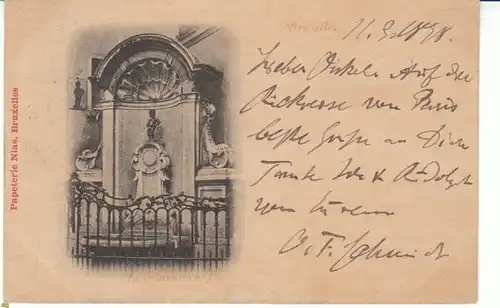 Bruxelles 11.3.1898.
Lieber Onkel. Auf der
Rückreise von Paris
beste Grüße an Dich
Tante Ida & Adolph
von Eurem
O. F. Schmidt
Papeterie Nias, Bruxelles